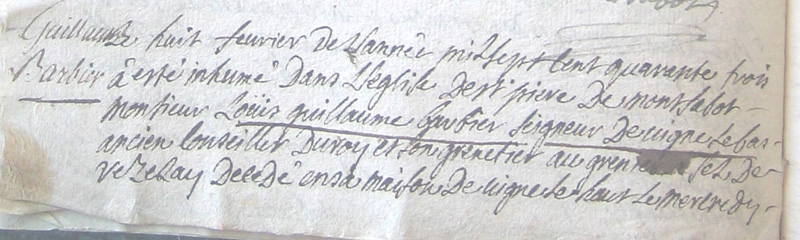 Guillaume Le huit feurier de L'année mil sept cent quarante trois
Barbier à esté inhumé Dans L'église De st piere De montsabot
monsieur Loüis guillaume barbier seigneur De uigne Le bas
ancien Conseiller Du roy et son grenetier au grenier a sel De
vezelay Decedé en sa maison De uigne Le haut Le mercredy